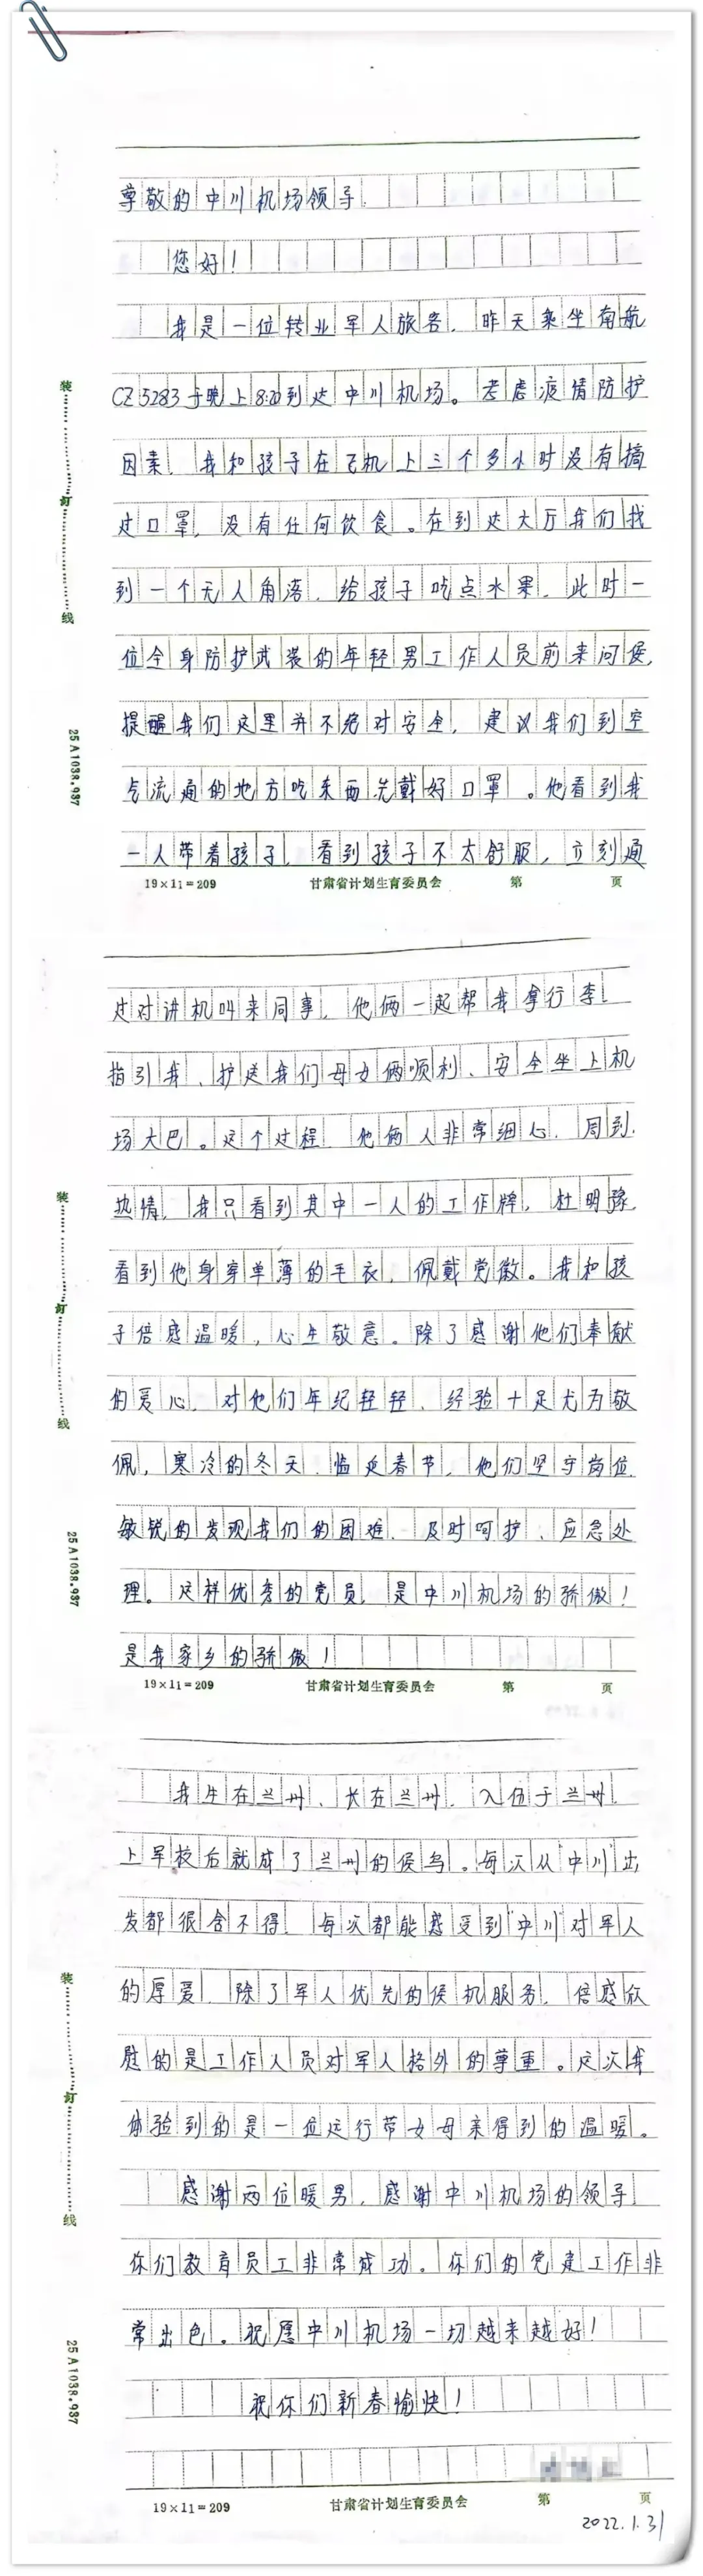 尊敬的中川机场领导
您好！
我是一位转业军人旅客，昨天乘坐南航
CZ5283于晚上8:20到达中川机场。考虑疫情防护
因素，我和孩子在飞机上三个多小时没有摘
过口罩，没有任何饮食。在到达大厅我们找
到一个无人角落，给孩子吃点水果，此时一
位全身防护武装的年轻男工作人员前来问候，
提醒我们这里并不绝对安全，建议我们到空
气流通的地方吃东西先戴好口罩。他看到我
一人带着孩子，看到孩子不太舒服，立刻通
19×11=209 甘肃省计划生育委员会 第 页
装 订 线
25A1038.937
过对讲机叫来同事，他俩一起帮我拿行李、
指引我、护送我们母女俩顺利、安全坐上机
场大巴。这个过程 他俩人非常细心、周到、
热情，我只看到其中一人的工作牌，杜明豫，
看到他身穿单薄的毛衣，佩戴党徽。我和孩
子倍感温暖，心生敬意。除了感谢他们奉献
的爱心，对他们年纪轻轻、经验十足尤为敬
佩，寒冷的冬天，临近春节，他们坚守岗位，
敏锐的发现我们的困难、及时呵护、应急处
理。这样优秀的党员，是中川机场的骄傲！
是我家乡的骄傲！
19×11=209 甘肃省计划生育委员会 第 页
装 订 线
25A1038.937
我生在兰州、长在兰州、入伍于兰州，
上军校后就成了兰州的候鸟。每次从“中川”出
发都很舍不得，每次都能感受到“中川”对军人
的厚爱，除了军人优先的候机服务，倍感欣
慰的是工作人员对军人格外的尊重。这次我
体验到的是一位远行带女母亲得到的温暖。
感谢两位暖男，感谢中川机场的领导，
你们教育员工非常成功。你们的党建工作非
常出色。祝愿中川机场一切越来越好！
祝你们新春愉快！
19×11=209 甘肃省计划生育委员会 第 页
2022.1.31
装 订 线
25A1038.937